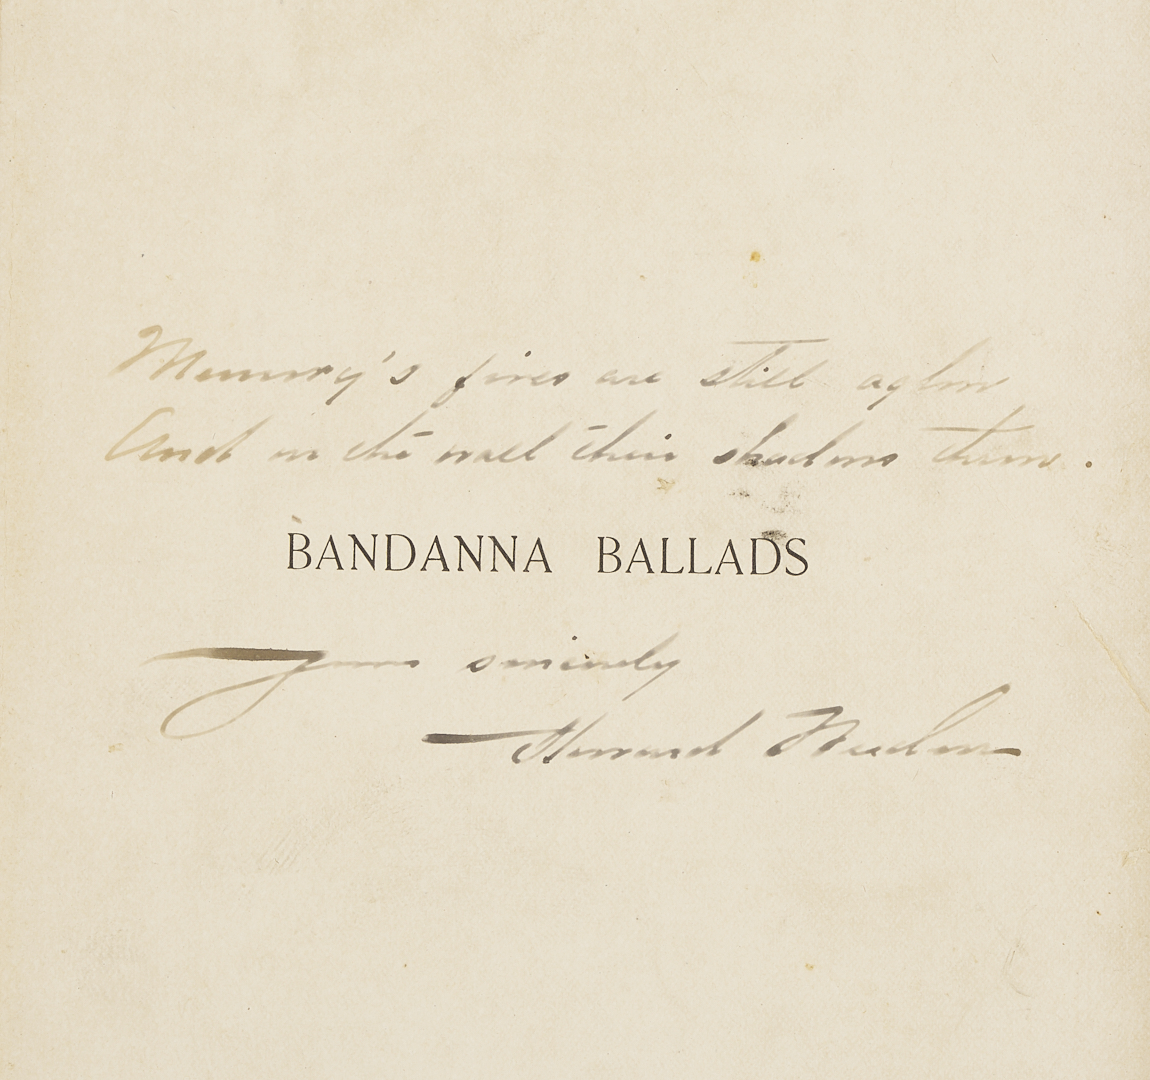 Memory's fires are still aglow
And on the wall their shadows throw.
BANDANNA BALLADS
Yours sincerely
Howard Weeden